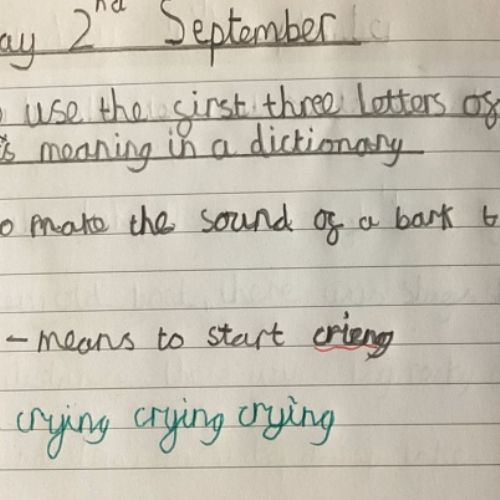 ay 2nd September
use the first three letters of
's meaning in a dictionary
o make the sound of a bark
- means to start crieng
crying crying crying